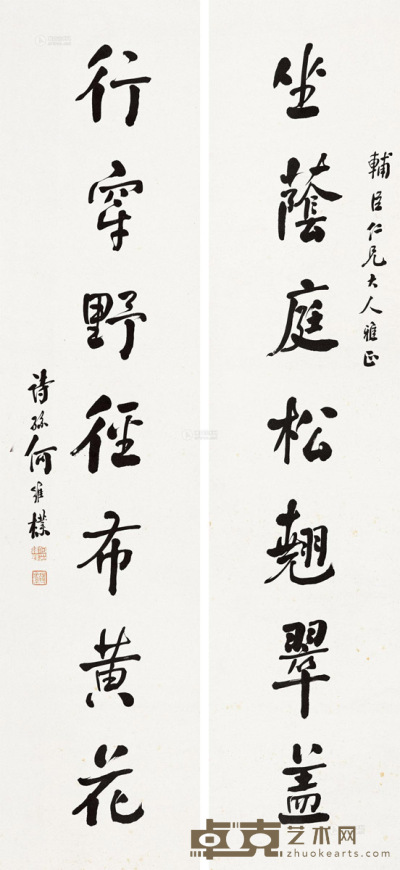 輔臣仁兄大人雅正
坐蔭庭松翹翠蓋
行穿野徑布黃花
詩孫何維樸
卓克艺术网
zhuokearts.com